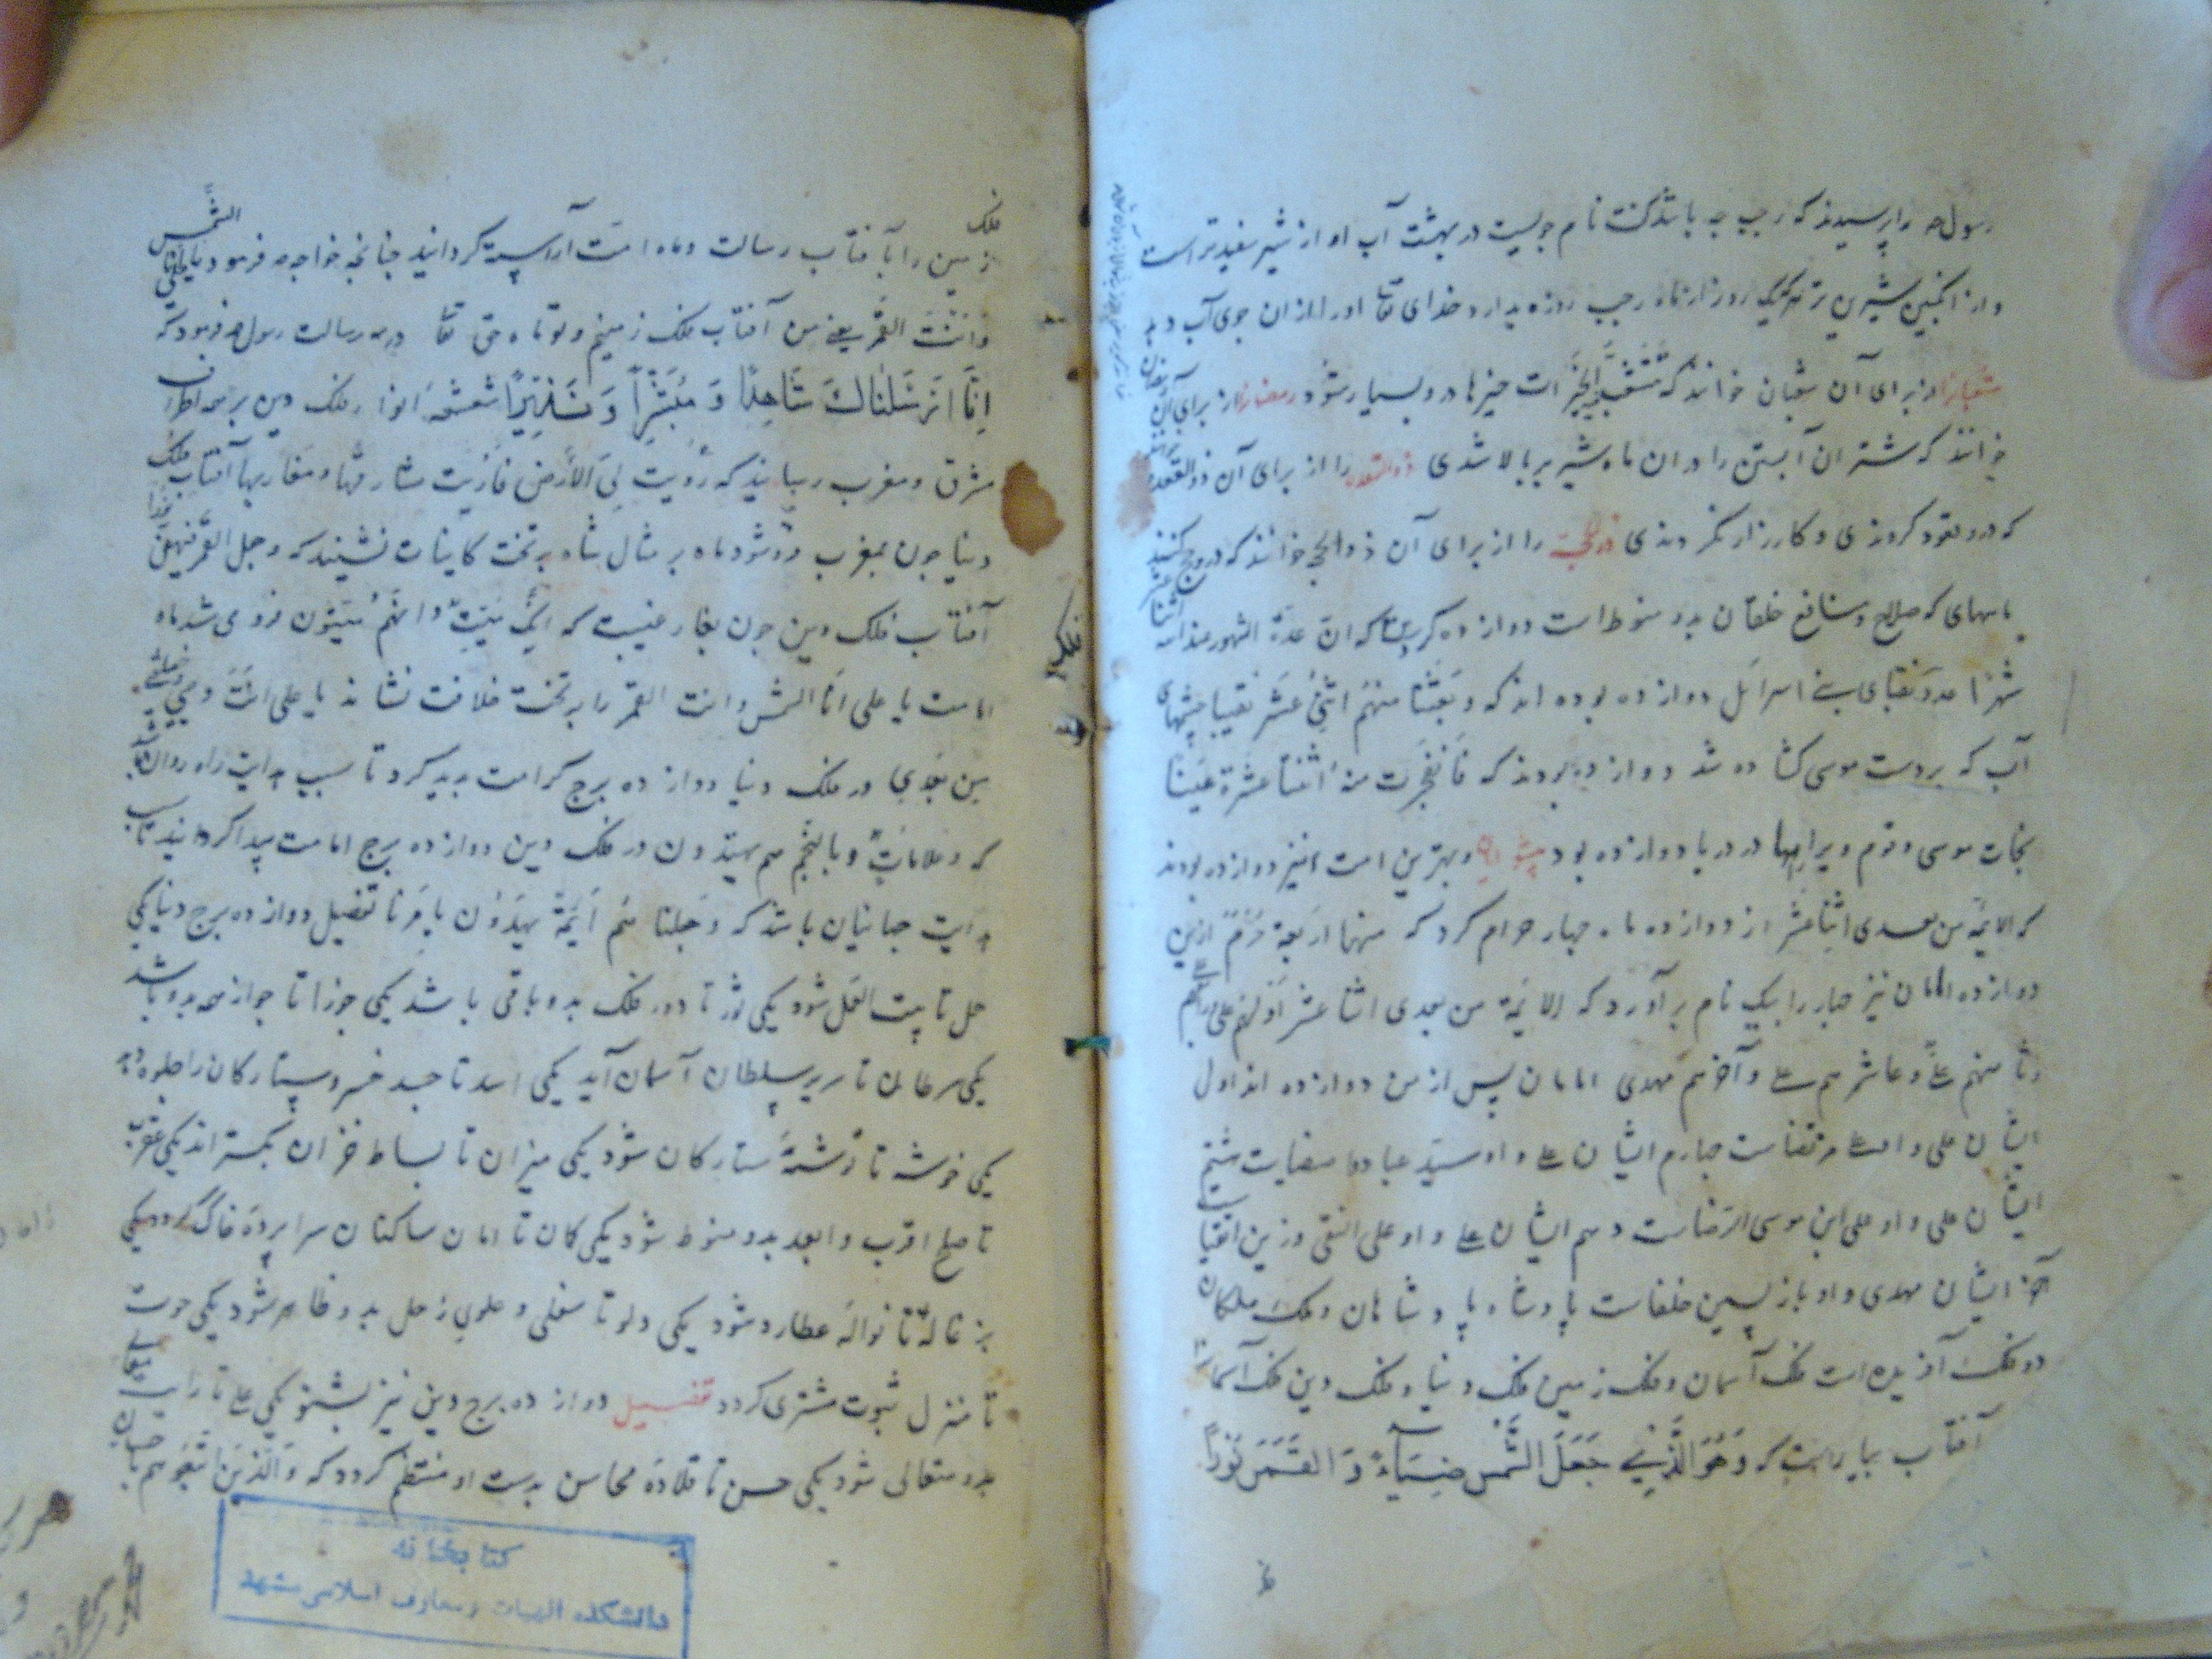 رسول ص را پرسیدند که رجب چه باشد گفت نام جویست در بهشت آب او از شیر سفیدتر است
و از انگبین شیرین تر هرکه یک روز از ماه رجب روزه بدارد خدای تعا او را از آن جوی آب دهد
شعبان را از برای آن شعبان خوانند که خیرها درو بسیار شود رمضان را از برای آن
خوانند که شتران آبستن را در آن ماه شیر بر بالا شدی ذوالقعده را از برای آن ذوالقعده
که درو قعود کردندی و کارزار نکردندی ذوالحجه را از برای آن ذوالحجه خوانند که درو حج کنند
ماههای که صلاح و منافع خلقان بدو منوط است دوازده که ان عدة الشهور عند الله اثنا عشر
شهرا عدد نقبای بنی اسرائل دوازده بوده اند که و بعثنا منهم اثنی عشر نقیبا چشمهای
آب که بر دست موسی گشاده شد دوازده بودند که فانفجرت منه اثنتا عشرة عینا
نجات موسی و قوم ویرا راهها در دریا دوازده بود و بهترین امت نیز دوازده بودند
که الائمة من بعدی اثنا عشر از دوازده ماه چهار حرام کرد که منها اربعة حرم ازین
دوازده امامان نیز چهار را بیک نام برآورد که الائمة من بعدی اثنا عشر اولهم علی
منهم علی و عاشرهم علی و آخرهم مهدی امامان پس از من دوازده اند اول
ایشان علی و او علی مرتضاست چهارم ایشان علی و او سید عباد هشتم
ایشان علی و او علی ابن موسی الرضاست دهم ایشان علی و او علی النقی و زین اتقیاست
آخر ایشان مهدی و او بازپسین خلفاست پادشاه پادشاهان و ملک ملکان
دو فلک آفریده است فلک آسمان و فلک زمین فلک دنیا و فلک دین فلک آسمان را
آفتاب بیاراست که وَهُوَ الَّذِی جَعَلَ الشَّمْسَ ضِیَآءً وَ القَمَرَ نُوْرًا
فلک
زمین را بآفتاب رسالت و ماه امامت آراسته گردانید چنانچه خواجه ص فرمود یا علی انا الشمس
وَ انتَ القمر یعنی من آفتاب فلک زمینم و تو ماه حق تعا رسالت رسول ص فرمود که
اِنَّا اَرْسَلْنَاكَ شَاهِدًا وَ مُبَشِّرًا وَ نَذِیْرًا شعشعه انوار فلک دین بر همه اطراف
مشرق و مغرب رسانید که زویت لی الارض فاریت مشارقها و مغاربها آفتاب فلک
دنیا چون بمغرب فرو شود ماه بر مثال شاه بر تخت کاینات نشیند که و جعل القمر فیهن نورا
آفتاب فلک دین چون بغار غیبت که انک میت و انهم میتون فرو می شد ماه
امامت یا علی انا الشمس و انت القمر را بر تخت خلافت نشاند یا علی انت وصیی و خلیفتی
من بعدی در فلک دنیا دوازده برج کرامت پدید کرد تا سبب هدایت راه روان باشد
که و علامات و بالنجم هم یهتدون در فلک دین دوازده برج امامت پیدا گردانید تا سبب
هدایت جهانیان باشد که و جعلنا منهم ائمة یهدون بامرنا تفصیل دوازده برج دنیا یکی
حمل تا بیت الحمل شود یکی ثور تا دور فلک بدو باقی باشد یکی جوزا تا جواز همه بدو باشد
یکی سرطان تا سریر سلطان آسمان آید یکی اسد تا جسد خسرو ستارگان را جلوه دهد
یکی خوشه تا توشهٔ ستارگان شود یکی میزان تا بساط خزان بگستراند یکی عقرب
تا صلح اقرب و ابعد بدو منوط شود یکی کمان تا امان ساکنان سراپرده خاک گردد یکی
بزغاله تا نواله عطارد شود یکی دلو تا سفلی و علوی زحل بدو ظاهر شود یکی حوت
تا منزل ثبوت مشتری گردد تفصیل دوازده برج دین نیز بشنو یکی علی تا
بدو متعالی شود یکی حسن تا قلاده محاسن بدست او منتظم گردد که و الذین اتبعوهم باحسان
فلک
کتابخانه
دانشکده الهیات و معارف اسلامی مشهد